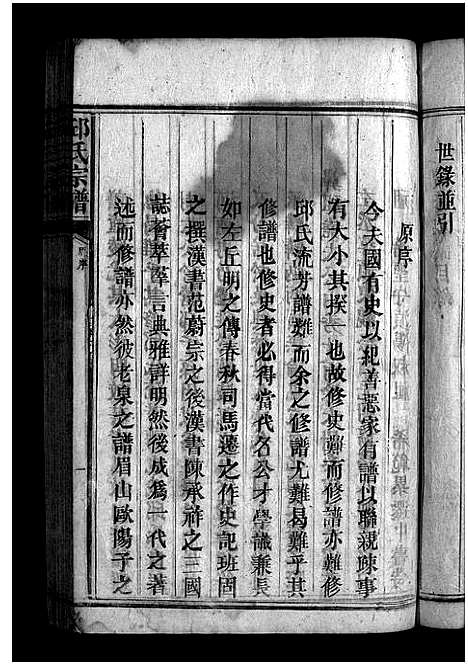 世錄並引
原序
今夫國有史以紀善惡家有譜以聯親疎事
有大小其揆一也故修史難而修譜亦難修
邱氏流芳譜難而余之修譜尤難曷難乎其
修譜也修史者必得當代名公才學識兼長
如左丘明之傳春秋司馬遷之作史記班固
之撰漢書范蔚宗之後漢書陳承祚之三國
誌薈萃羣言典雅詳明然後成為一代之著
述而修譜亦然彼老泉之譜眉山歐陽子之
邱氏宗譜
原序
一